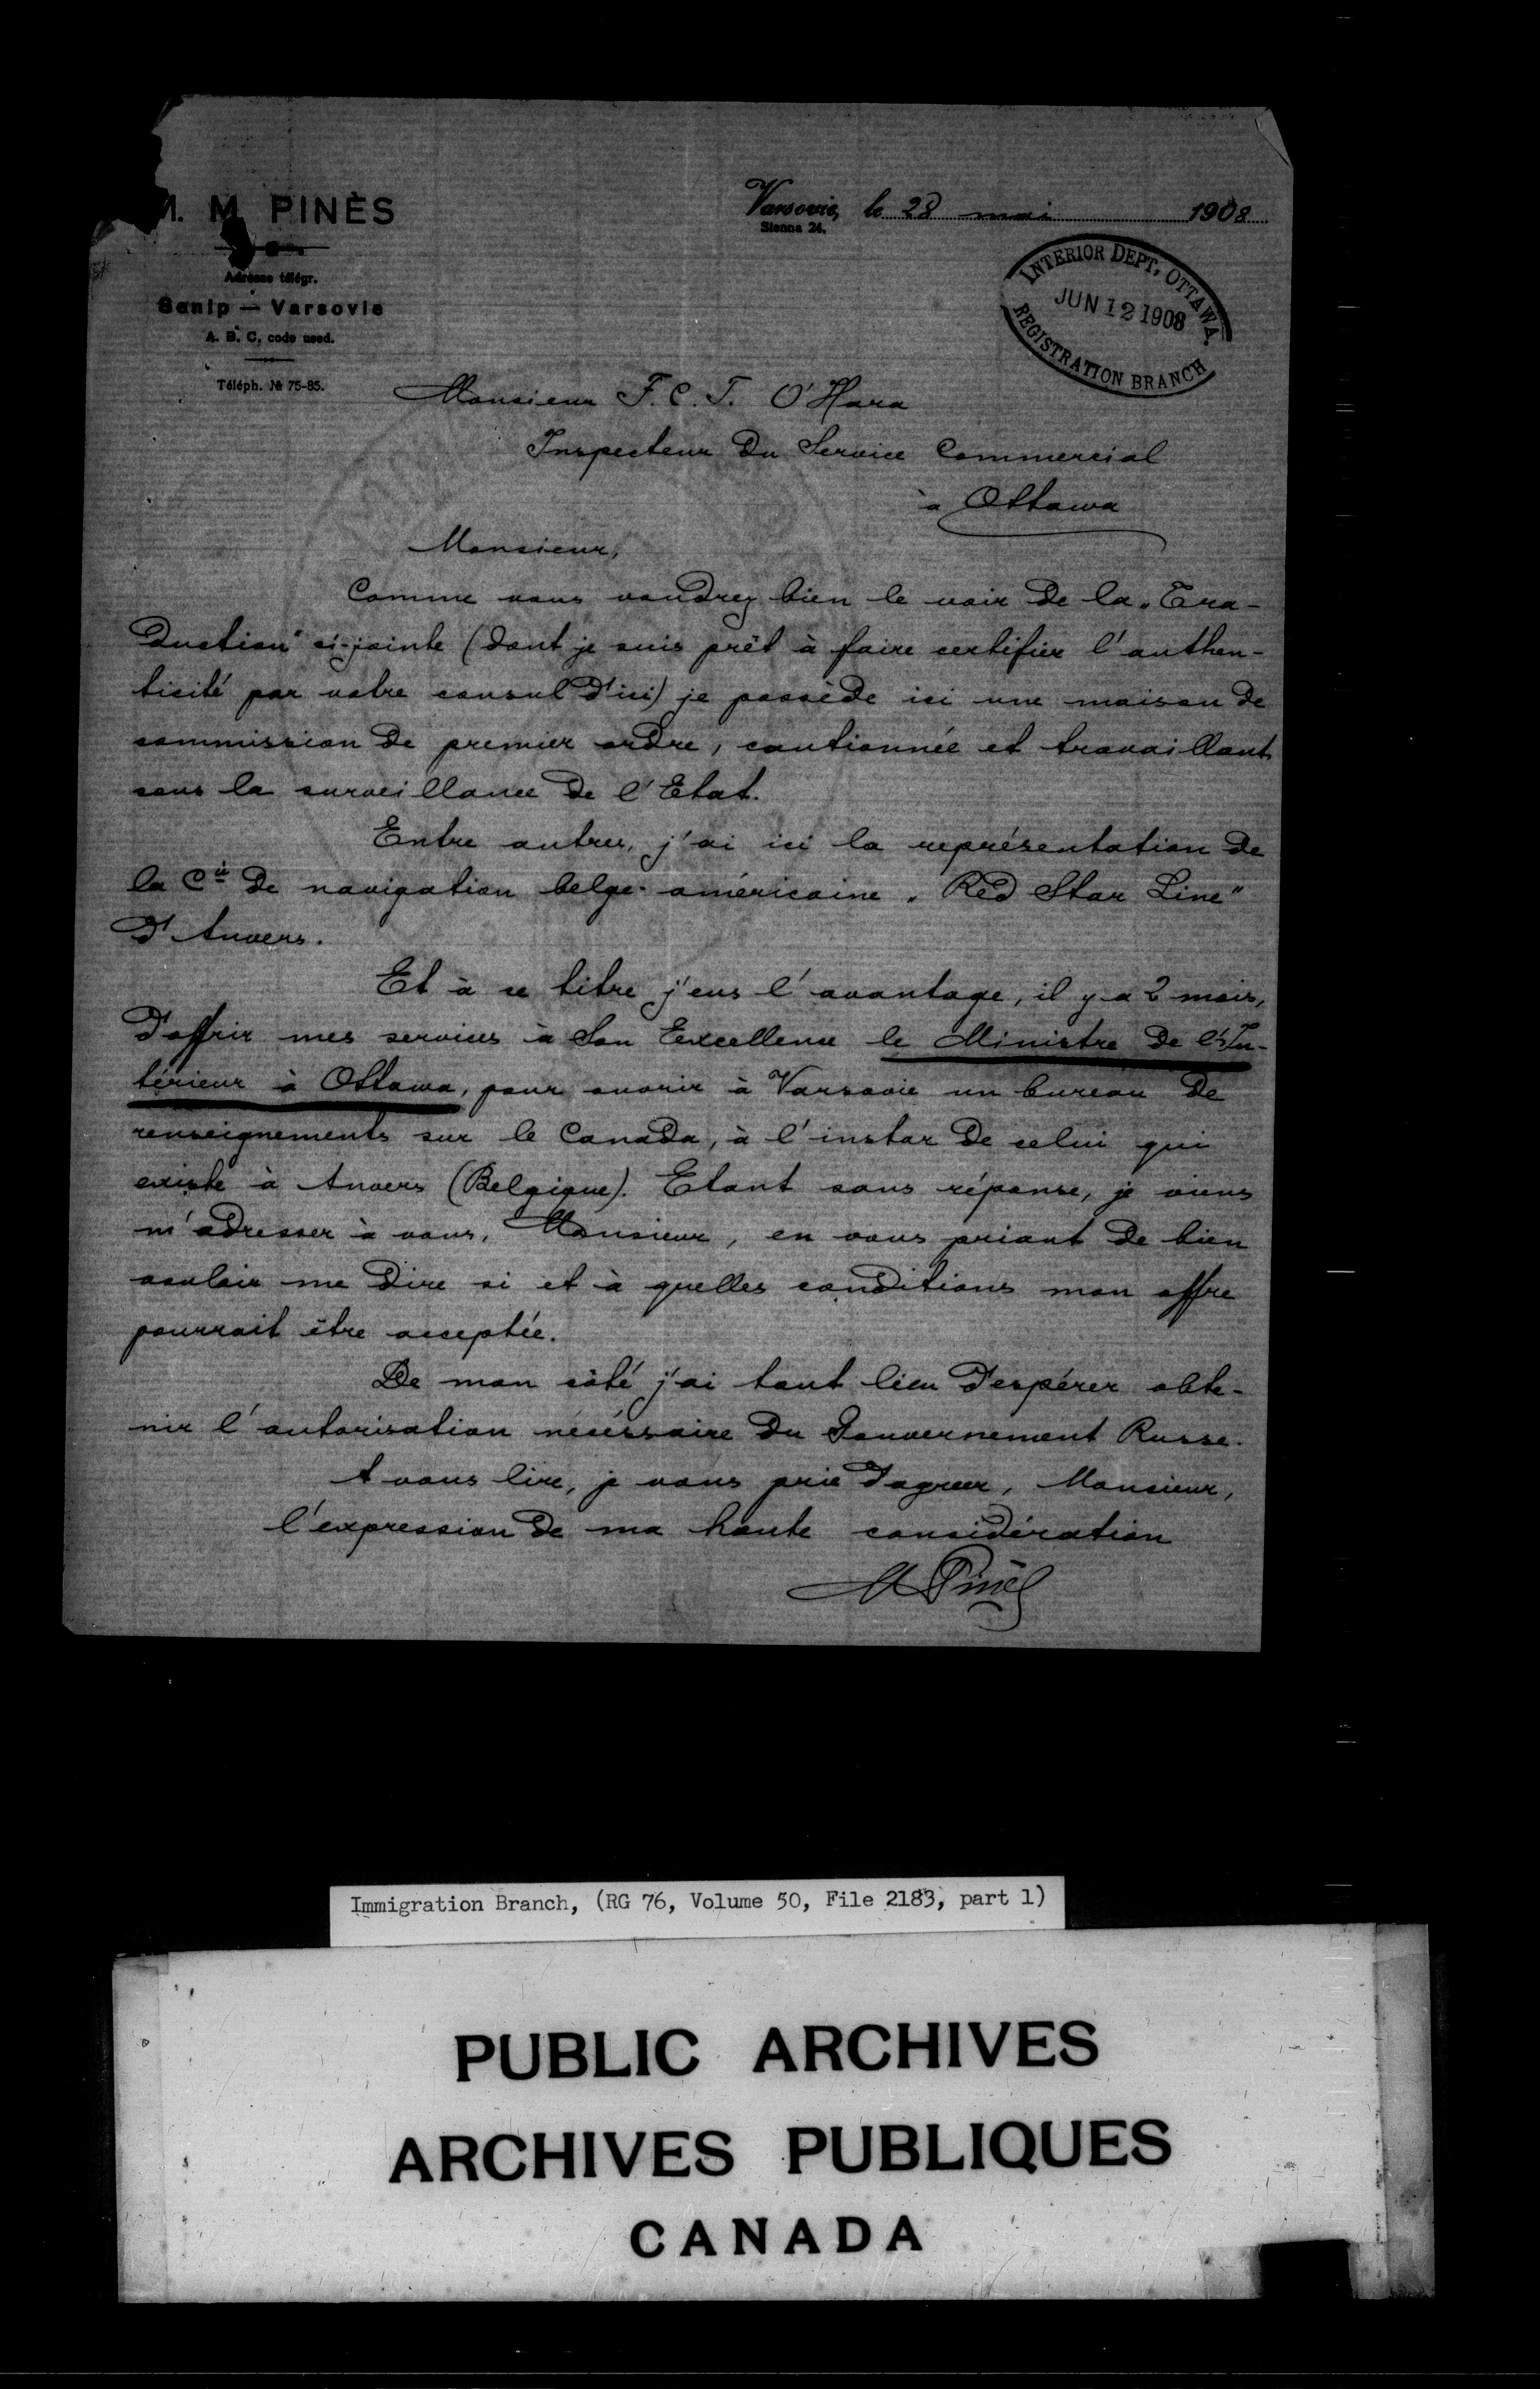 M. M. PINÈS
Adresse télégr.
Senip — Varsovie
A. B. C. code used.
Téléph. № 75-85.
Varsovie, le 28 mai 1908
Sienna 24.
INTERIOR DEPT, OTTAWA.
JUN 12 1908
REGISTRATION BRANCH
Monsieur F. C. T. O'Hara
Inspecteur du Service Commercial
à Ottawa
Monsieur,
Comme vous voudrez bien le voir de la „Tra-
duction" ci-jointe (dont je suis prêt à faire certifier l'authen-
ticité par votre consul d'ici) je possède ici une maison de
commission de premier ordre, cautionnée et travaillant
sous la surveillance de l'Etat.
Entre autres, j'ai ici la représentation de
la Cie de navigation belge-américaine „Red Star Line"
d'Anvers.
Et à ce titre j'eus l'avantage, il y a 2 mois,
d'offrir mes services à Son Excellence le Ministre de l'In-
térieur à Ottawa, pour ouvrir à Varsovie un bureau de
renseignements sur le Canada, à l'instar de celui qui
existe à Anvers (Belgique). Etant sans réponse, je viens
m'adresser à vous, Monsieur, en vous priant de bien
vouloir me dire si et à quelles conditions mon offre
pourrait être acceptée.
De mon côté j'ai tout lieu d'espérer obte-
nir l'autorisation nécéssaire du Gouvernement Russe.
A vous lire, je vous prie d'agreer, Monsieur,
l'expression de ma haute considération
M Pinès
Immigration Branch, (RG 76, Volume 50, File 2183, part 1)
PUBLIC ARCHIVES
ARCHIVES PUBLIQUES
CANADA